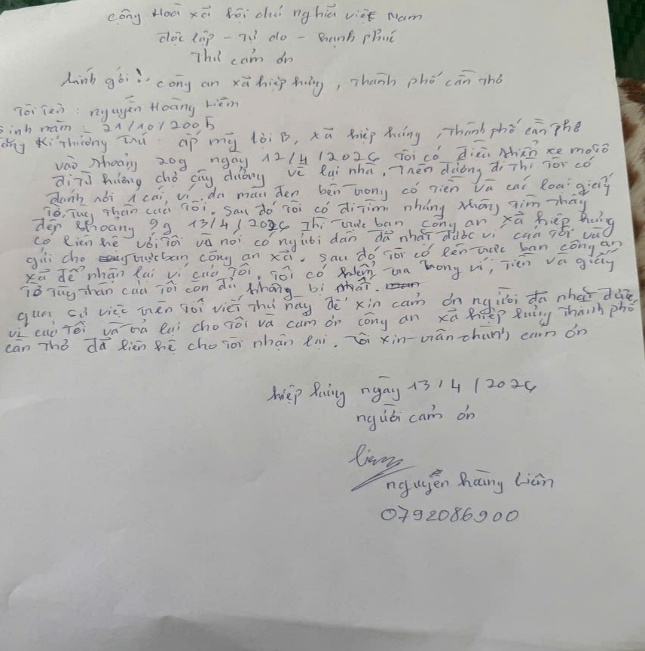 cộng Hoà xã hội chủ nghĩa việt Nam
độc lập - tự do - hạnh phúc
Thư cảm ơn
kính gởi: công an xã hiệp hưng, Thành phố cần thơ
Tôi tên: nguyễn Hoàng Liêm
sinh năm: 21/10/2005
đăng kí thường trú: ấp mỹ lợi B, xã hiệp hưng, Thành phố cần thơ
vào khoảng 20g ngày 12/4/2026 Tôi có điều khiển xe môtô
đi từ hướng chợ cây dương về lại nhà, Trên đường đi thì Tôi có
đánh rơi 1 cái ví da màu đen bên trong có tiền và các loại giấy
tờ tùy thân của Tôi. Sau đó Tôi có đi tìm nhưng không tìm thấy
đến khoảng 9g 13/4/2026 thì trực ban công an xã hiệp hưng
có liên hệ với Tôi và nói có người dân đã nhặt được ví của Tôi và
gửi cho trực ban công an xã. Sau đó Tôi có lên trực ban công an
xã để nhận lại ví của Tôi. Tôi có kiểm tra trong ví, Tiền và giấy
Tờ tùy thân của Tôi còn đủ không bị mất.
qua sự việc trên Tôi viết thư này để xin cảm ơn người đã nhặt được
ví của Tôi và trả lại cho Tôi và cảm ơn công an xã hiệp hưng Thành phố
cần Thơ đã liên hệ cho Tôi nhận lại. Tôi xin chân thành cảm ơn
hiệp hưng ngày 13/4/2026
người cảm ơn
Liêm
nguyễn hàng Liêm
0792086900